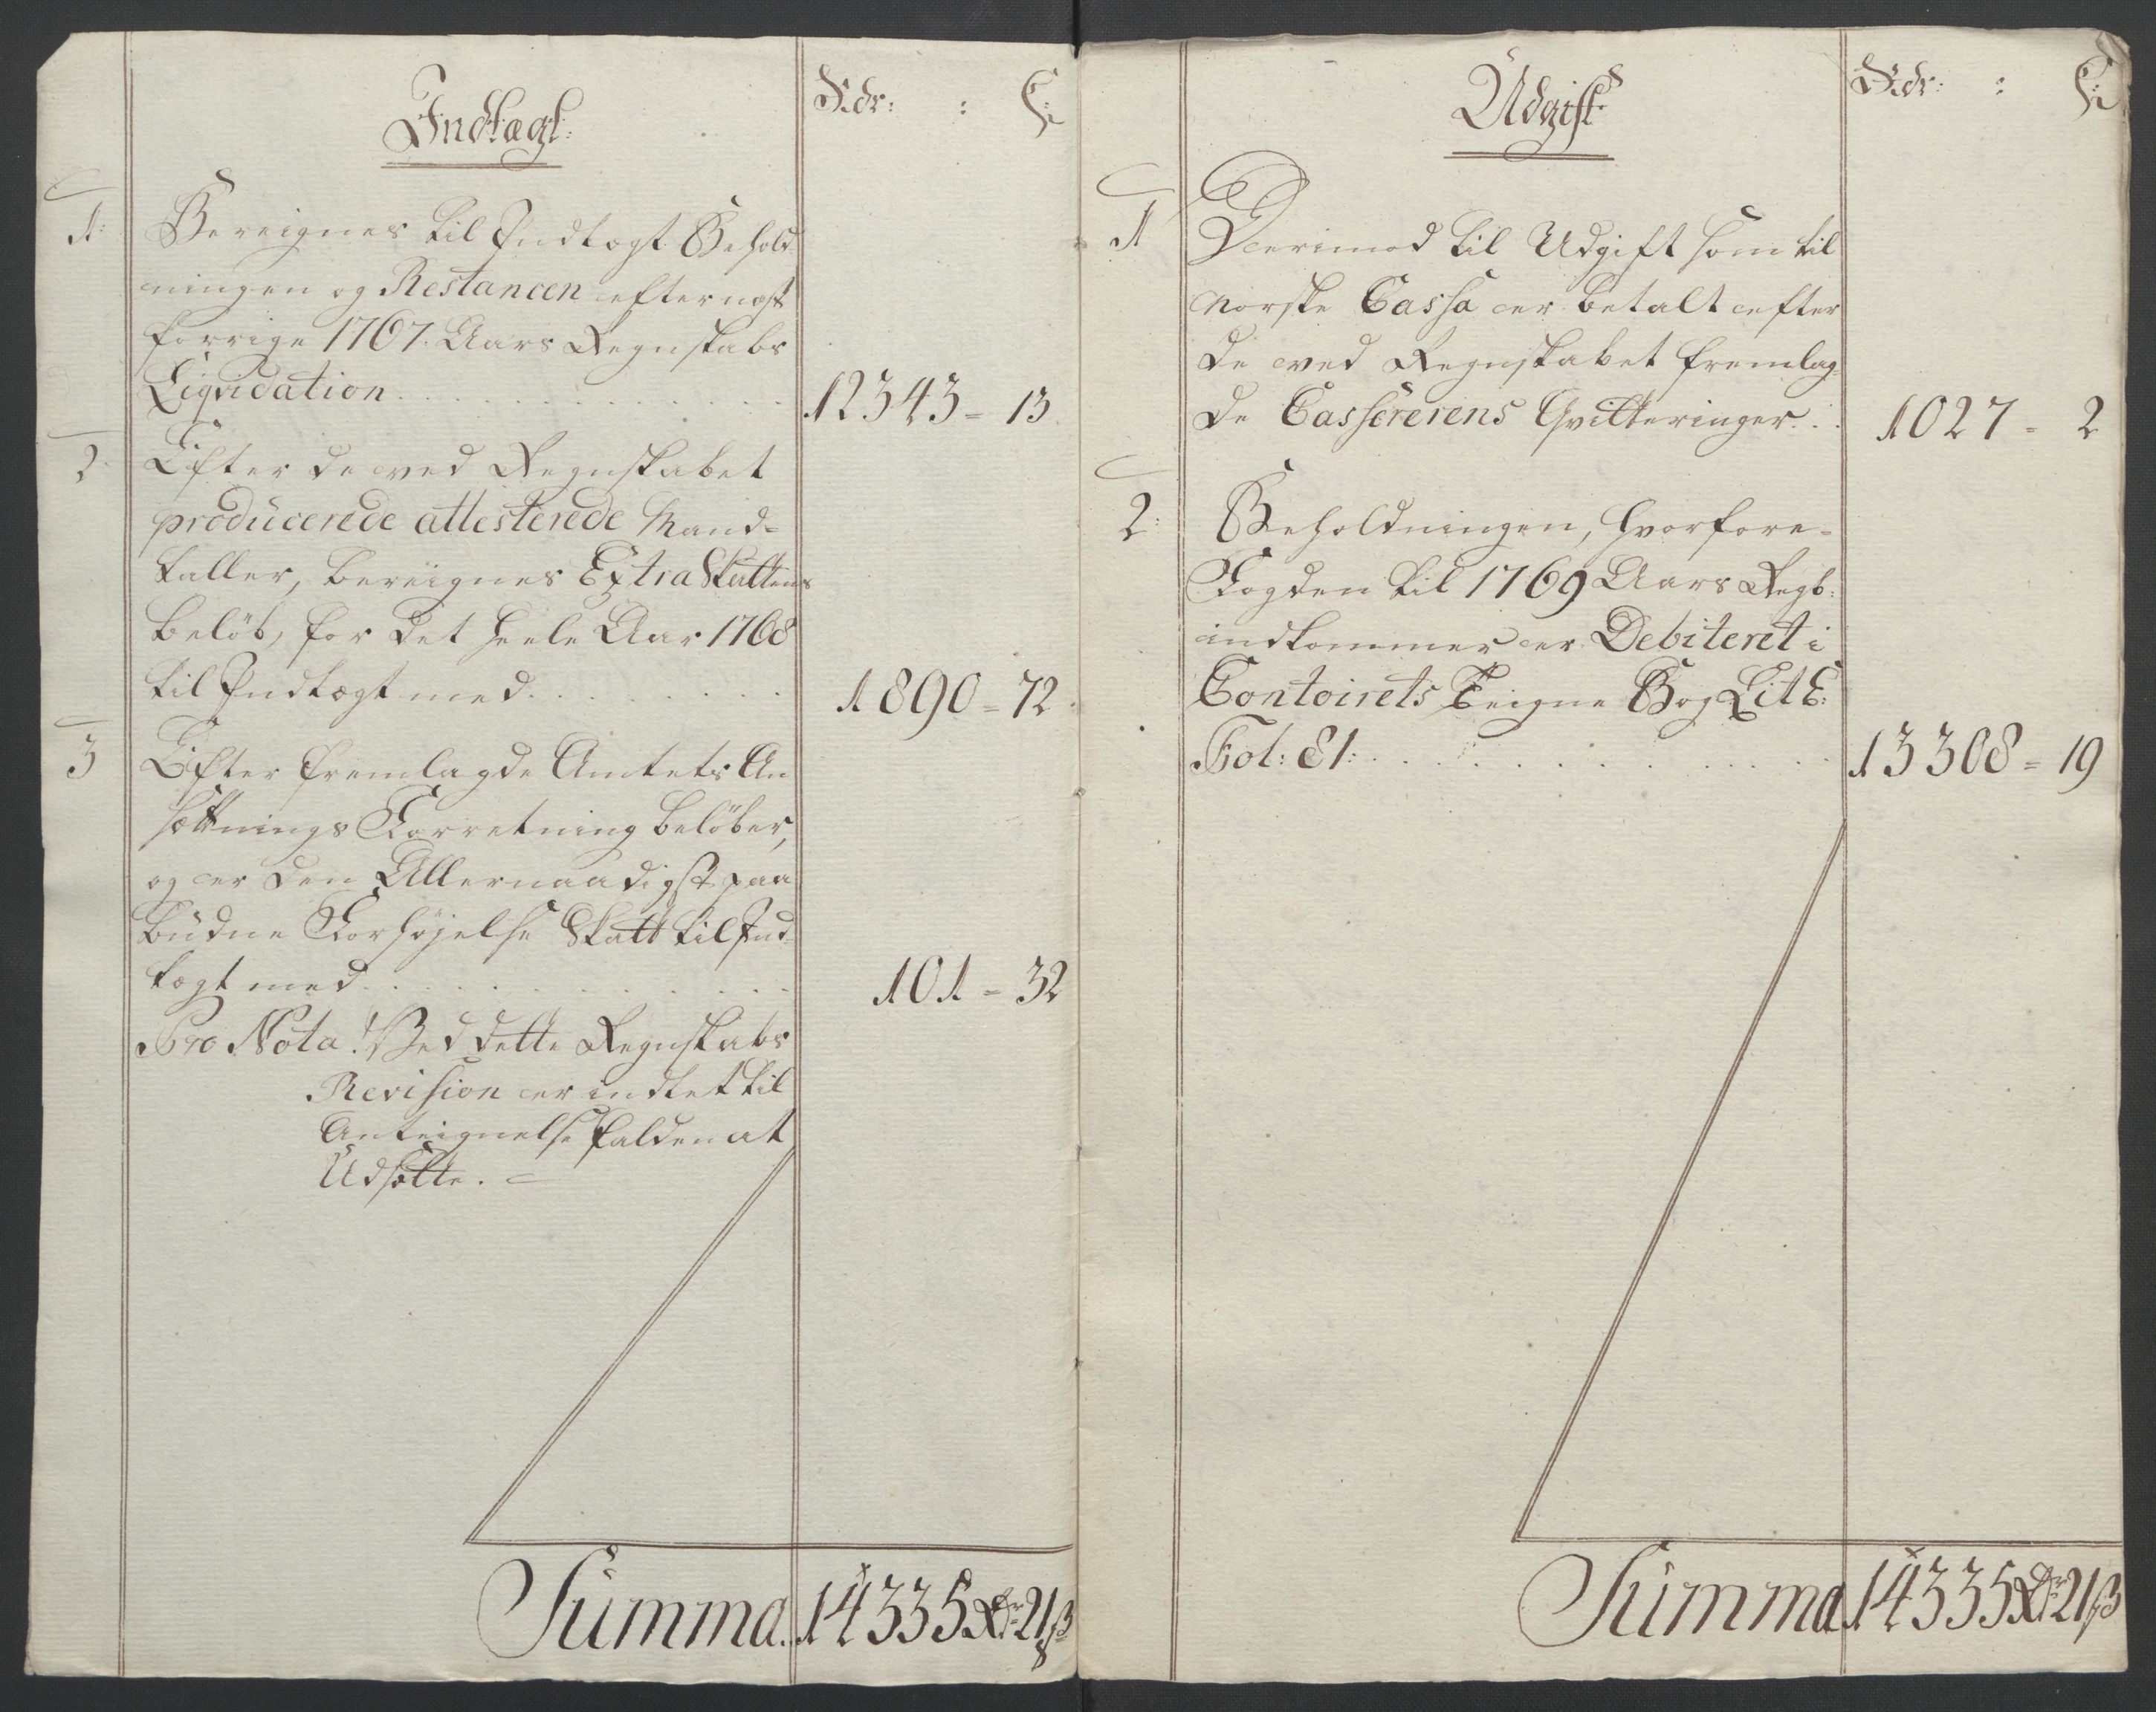 Indtægt:
Rdr: : ß:
1: Bereignes til Indtægt Behold
ningen og Restancen efter næst
forrige 1767. Aars Regnskabs
Liqvidation 12343 = 13
2. Efter de ved Regnskabet
producerede attesterede Mand=
taller, bereignes Extra Skattens
beløb, for det heele Aar 1768
til Indtægt med 1890 = 72
3 Efter fremlagde Amtets An
sættnings Forretning beløber,
og er den Allernaadigst paa
budne Forhøjelse Skatt til Ind=
tægt med 101 = 32
Pro Nota. Ved dette Regnskabs
Revision er indtet til
Anteignelse falden at
Udsætte. =
Summa. 14335 Rdr 21 ß
Udgift
Rdr: : ß:
1 Derimod til Udgift som til
norske Cassa er betalt efter
de ved Regnskabet fremlag=
de Cassererens Qvitteringer 1027 = 2
2: Beholdningen, hvorfore
Fogden til 1769 Aars Regb:
indkommer er Debiteret i
Contoirets Teigne Bog Lit E:
Fol: 81: 13308 = 19
Summa 14335 Rdr 21 ß